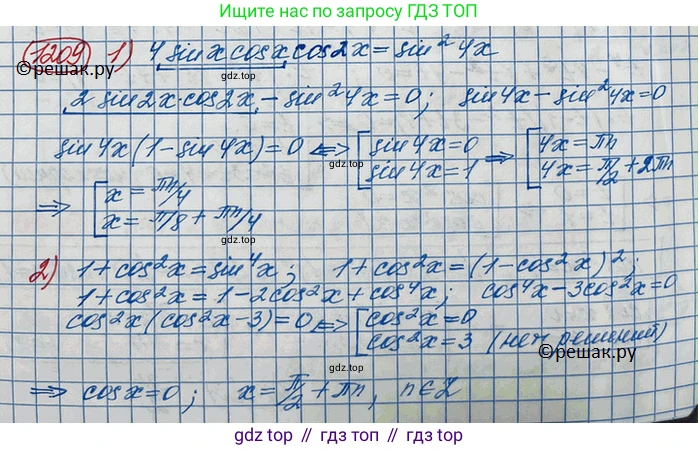 Ищите нас по запросу ГДЗ ТОП
1209 1) 4 sin x cos x cos 2x = sin² 4x
©reшак.ру gdz.top
2 sin 2x · cos 2x - sin² 4x = 0; sin 4x - sin² 4x = 0
sin 4x (1 - sin 4x) = 0 ⇔ [ sin 4x = 0 ⇒ [ 4x = πn
sin 4x = 1 4x = π/2 + 2πn
gdz.top ©reшак.ру
⇒ [ x = πn/4
x = π/8 + πn/4
gdz.top
2) 1 + cos² x = sin⁴ x; 1 + cos² x = (1 - cos² x)²;
1 + cos² x = 1 - 2cos² x + cos⁴ x; cos⁴ x - 3cos² x = 0
cos² x (cos² x - 3) = 0 ⇔ [ cos² x = 0
cos² x = 3 (нет решений)
©reшак.ру gdz.top ©reшак.ру
⇒ cos x = 0; x = π/2 + πn, n ∈ Z
gdz top // гдз топ // gdz.top // гдз.топ